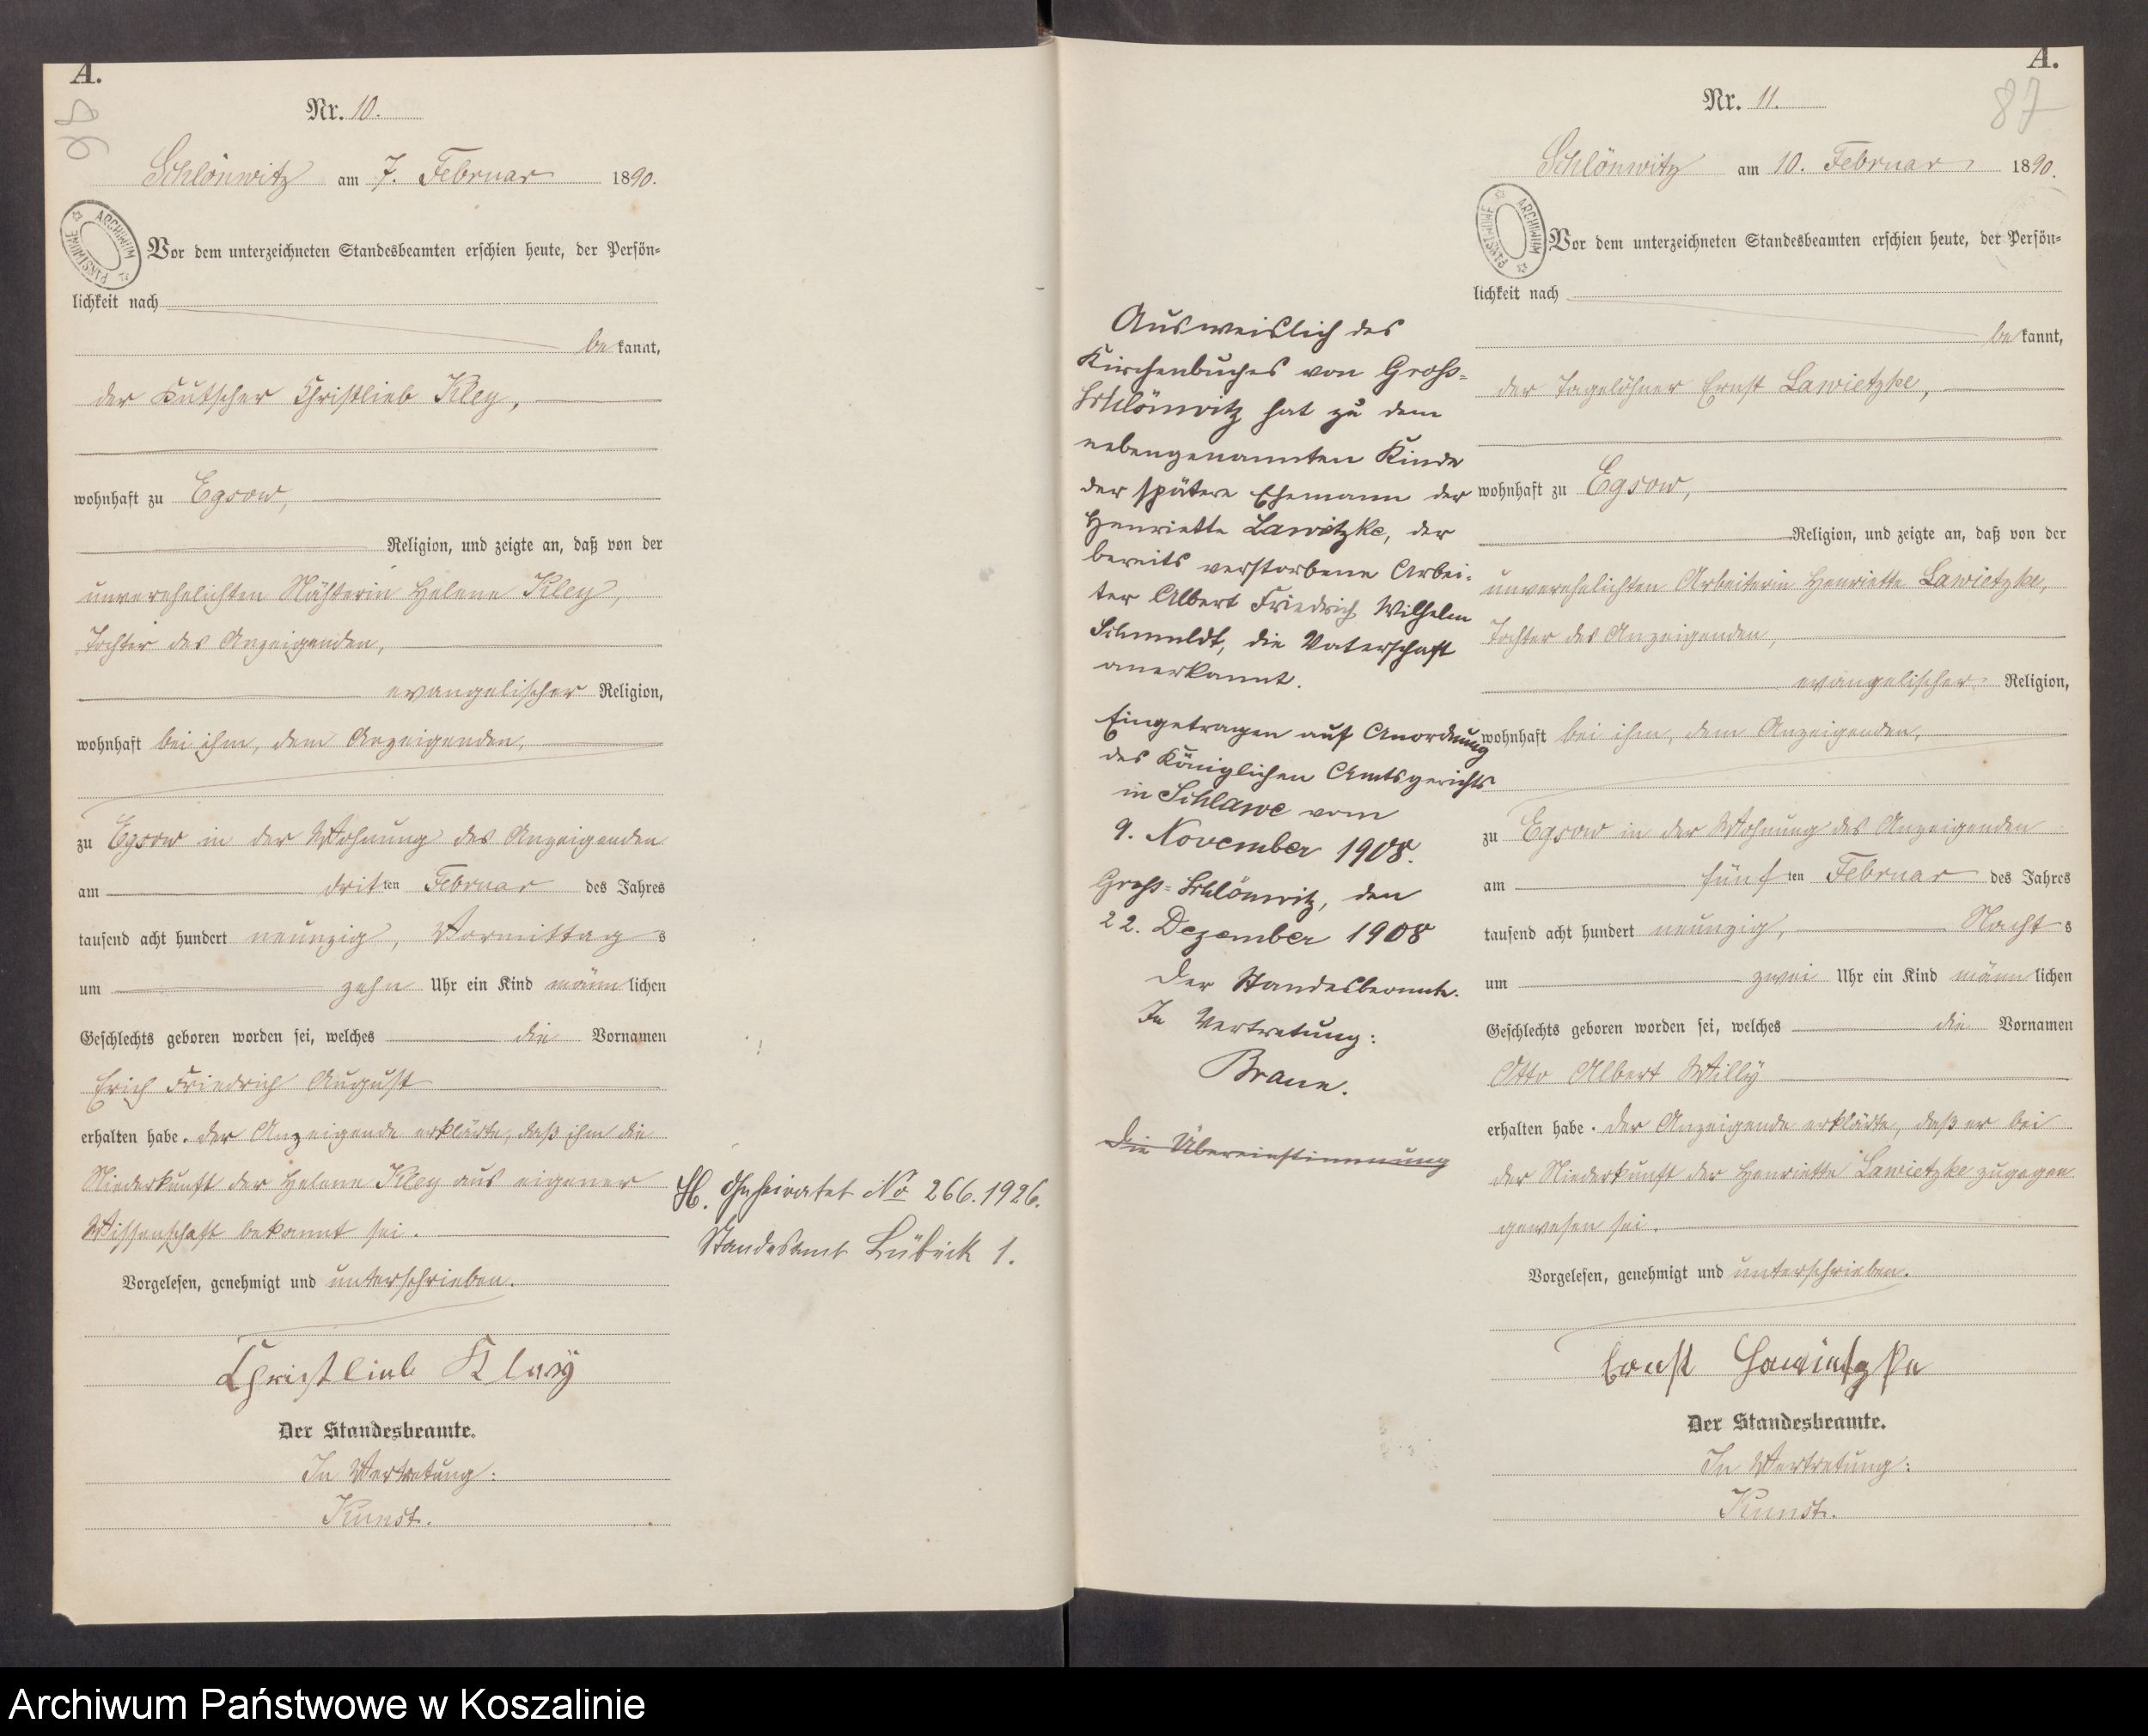 A.
86
Nr. 10.
Schlönwitz am 7. Februar 1890.
ARCHIWUM PAŃSTWOWE
Vor dem unterzeichneten Standesbeamten erschien heute, der Persön=
lichkeit nach
be kannt,
der Kutscher Christlieb Kley,
wohnhaft zu Egsow,
Religion, und zeigte an, daß von der
unverehelichten Nähterin Helene Kley,
Tochter des Anzeigenden,
evangelischer Religion,
wohnhaft bei ihm, dem Anzeigenden,
zu Egsow in der Wohnung des Anzeigenden
am dritten Februar des Jahres
tausend acht hundert neunzig, Vormittags
um zehn Uhr ein Kind männlichen
Geschlechts geboren worden sei, welches die Vornamen
Erich Friedrich August
erhalten habe. Der Anzeigende erklärte, daß ihm die
Niederkunft der Helene Kley aus eigener
Wissenschaft bekannt sei.
Vorgelesen, genehmigt und unterschrieben.
Christlieb Kley
Der Standesbeamte.
In Vertretung:
Kunst.
H. Geheiratet No 266.1926.
Standesamt Lübeck 1.
A.
87
Nr. 11.
Schlönwitz am 10. Februar 1890.
ARCHIWUM PAŃSTWOWE
Vor dem unterzeichneten Standesbeamten erschien heute, der Persön=
lichkeit nach
be kannt,
der Tagelöhner Ernst Lawietzke,
wohnhaft zu Egsow,
Religion, und zeigte an, daß von der
unverehelichten Arbeiterin Henriette Lawietzke,
Tochter des Anzeigenden,
evangelischer Religion,
wohnhaft bei ihm, dem Anzeigenden,
zu Egsow in der Wohnung des Anzeigenden
am fünften Februar des Jahres
tausend acht hundert neunzig, Nachts
um zwei Uhr ein Kind männlichen
Geschlechts geboren worden sei, welches die Vornamen
Otto Albert Willy
erhalten habe. Der Anzeigende erklärte, daß er bei
der Niederkunft der Henriette Lawietzke zugegen
gewesen sei.
Vorgelesen, genehmigt und unterschrieben.
Ernst Lawietzke
Der Standesbeamte.
In Vertretung:
Kunst.
Ausweislich des
Kirchenbuches von Groß=
Schlönwitz hat zu dem
nebengenannten Kinde
der spätere Ehemann der
Henriette Lawitzke, der
bereits verstorbene Arbei=
ter Albert Friedrich Wilhelm
Schmuldt, die Vaterschaft
anerkannt.
Eingetragen auf Anordnung
des Königlichen Amtsgerichts
in Schlawe vom
9. November 1908.
Groß=Schlönwitz, den
22. Dezember 1908
Der Standesbeamte.
In Vertretung:
Die Übereinstimmung
Archiwum Państwowe w Koszalinie